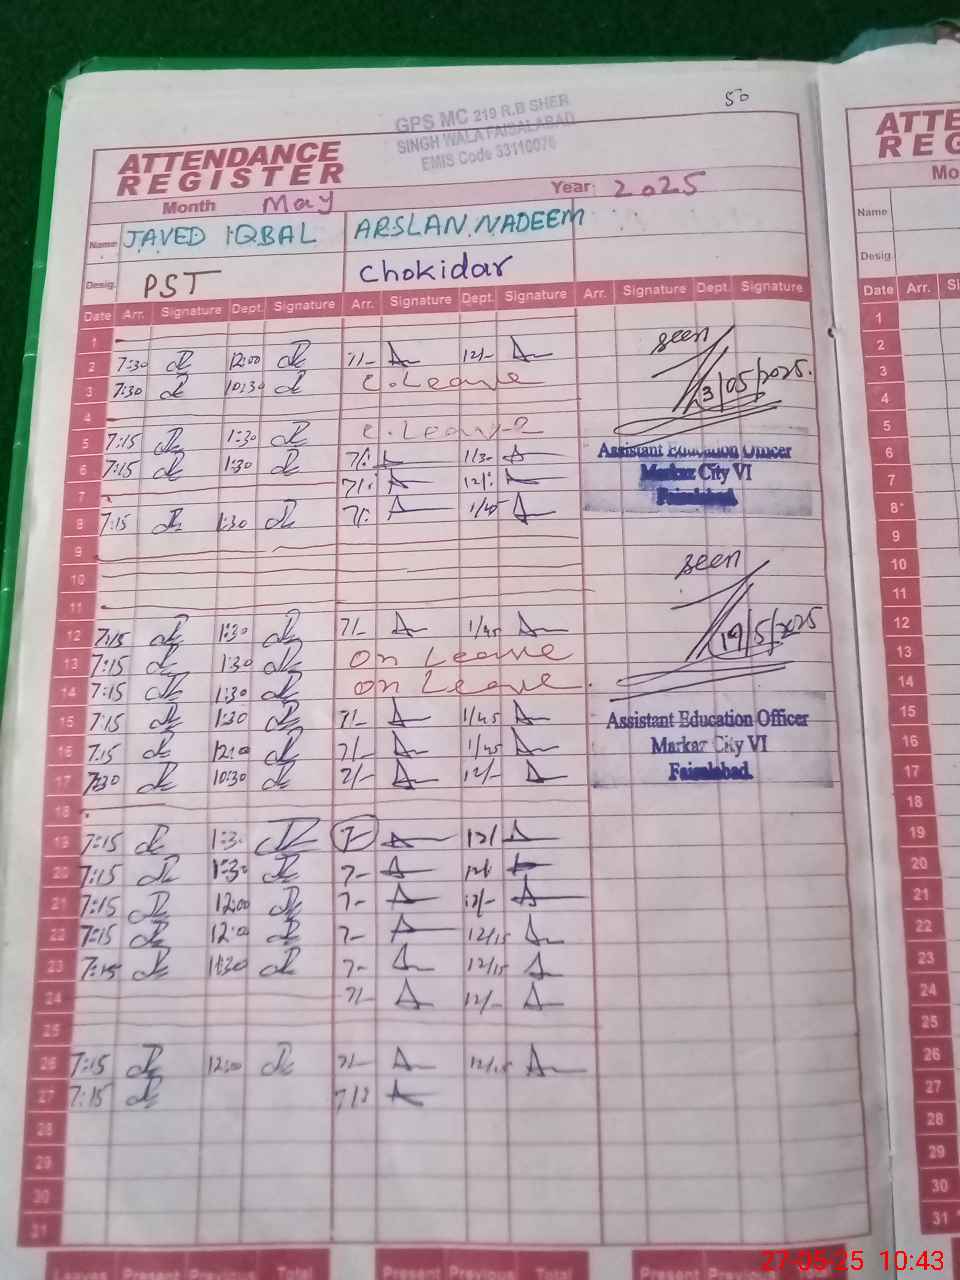 50
GPS MC 219 R.B SHER
SINGH WALA FAISALABAD
EMIS Code 33110076
ATTENDANCE
REGISTER
Month May Year 2025
Name JAVED IQBAL ARSLAN NADEEM
Desig. PST Chokidar
Date Arr. Signature Dept. Signature Arr. Signature Dept. Signature Arr. Signature Dept. Signature
1
2 7:30 12:00 7/- 12/-
3 7:30 10:30 C.Leave
4
5 7:15 1:30 C.Leave
6 7:15 1:30 7/: 1/30
7 7/: 12/:
8 7:15 1:30 7/: 1/45
9
10
11
12 7:15 1:30 7/- 1/45
13 7:15 1:30 On Leave
14 7:15 1:30 On Leave.
15 7:15 1:30 7/- 1/45
16 7:15 12:00 7/- 1/45
17 7:30 10:30 7/- 12/-
18
19 7:15 1:30 7- 12/
20 7:15 1:30 7-
21 7:15 12:00 7- 12/-
22 7:15 12:00 7- 12/15
23 7:15 1:30 7- 12/15
24 7/- 12/-
25
26 7:15 12:00 7/- 12/15
27 7:15
28
29
30
31
seen
3/05/2025.
Assistant Education Officer
Markaz City VI
Faisalabad.
seen
19/5/2025
Assistant Education Officer
Markaz City VI
Faisalabad.
Present Total Present Present
ATTE
REG
Mo
Name
Desig.
Date Arr. Si
1
2
3
4
5
6
7
8
9
10
11
12
13
14
15
16
17
18
19
20
21
22
23
24
25
26
27
28
29
30
31
27-05-25 10:43